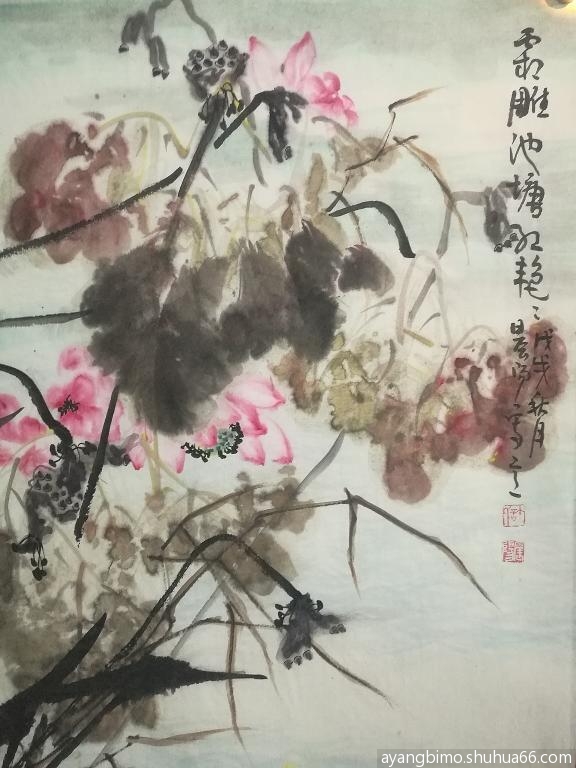 霜雕池塘红艳艳
戊戌秋月
日景明写之
ayangbimo.shuhua66.com